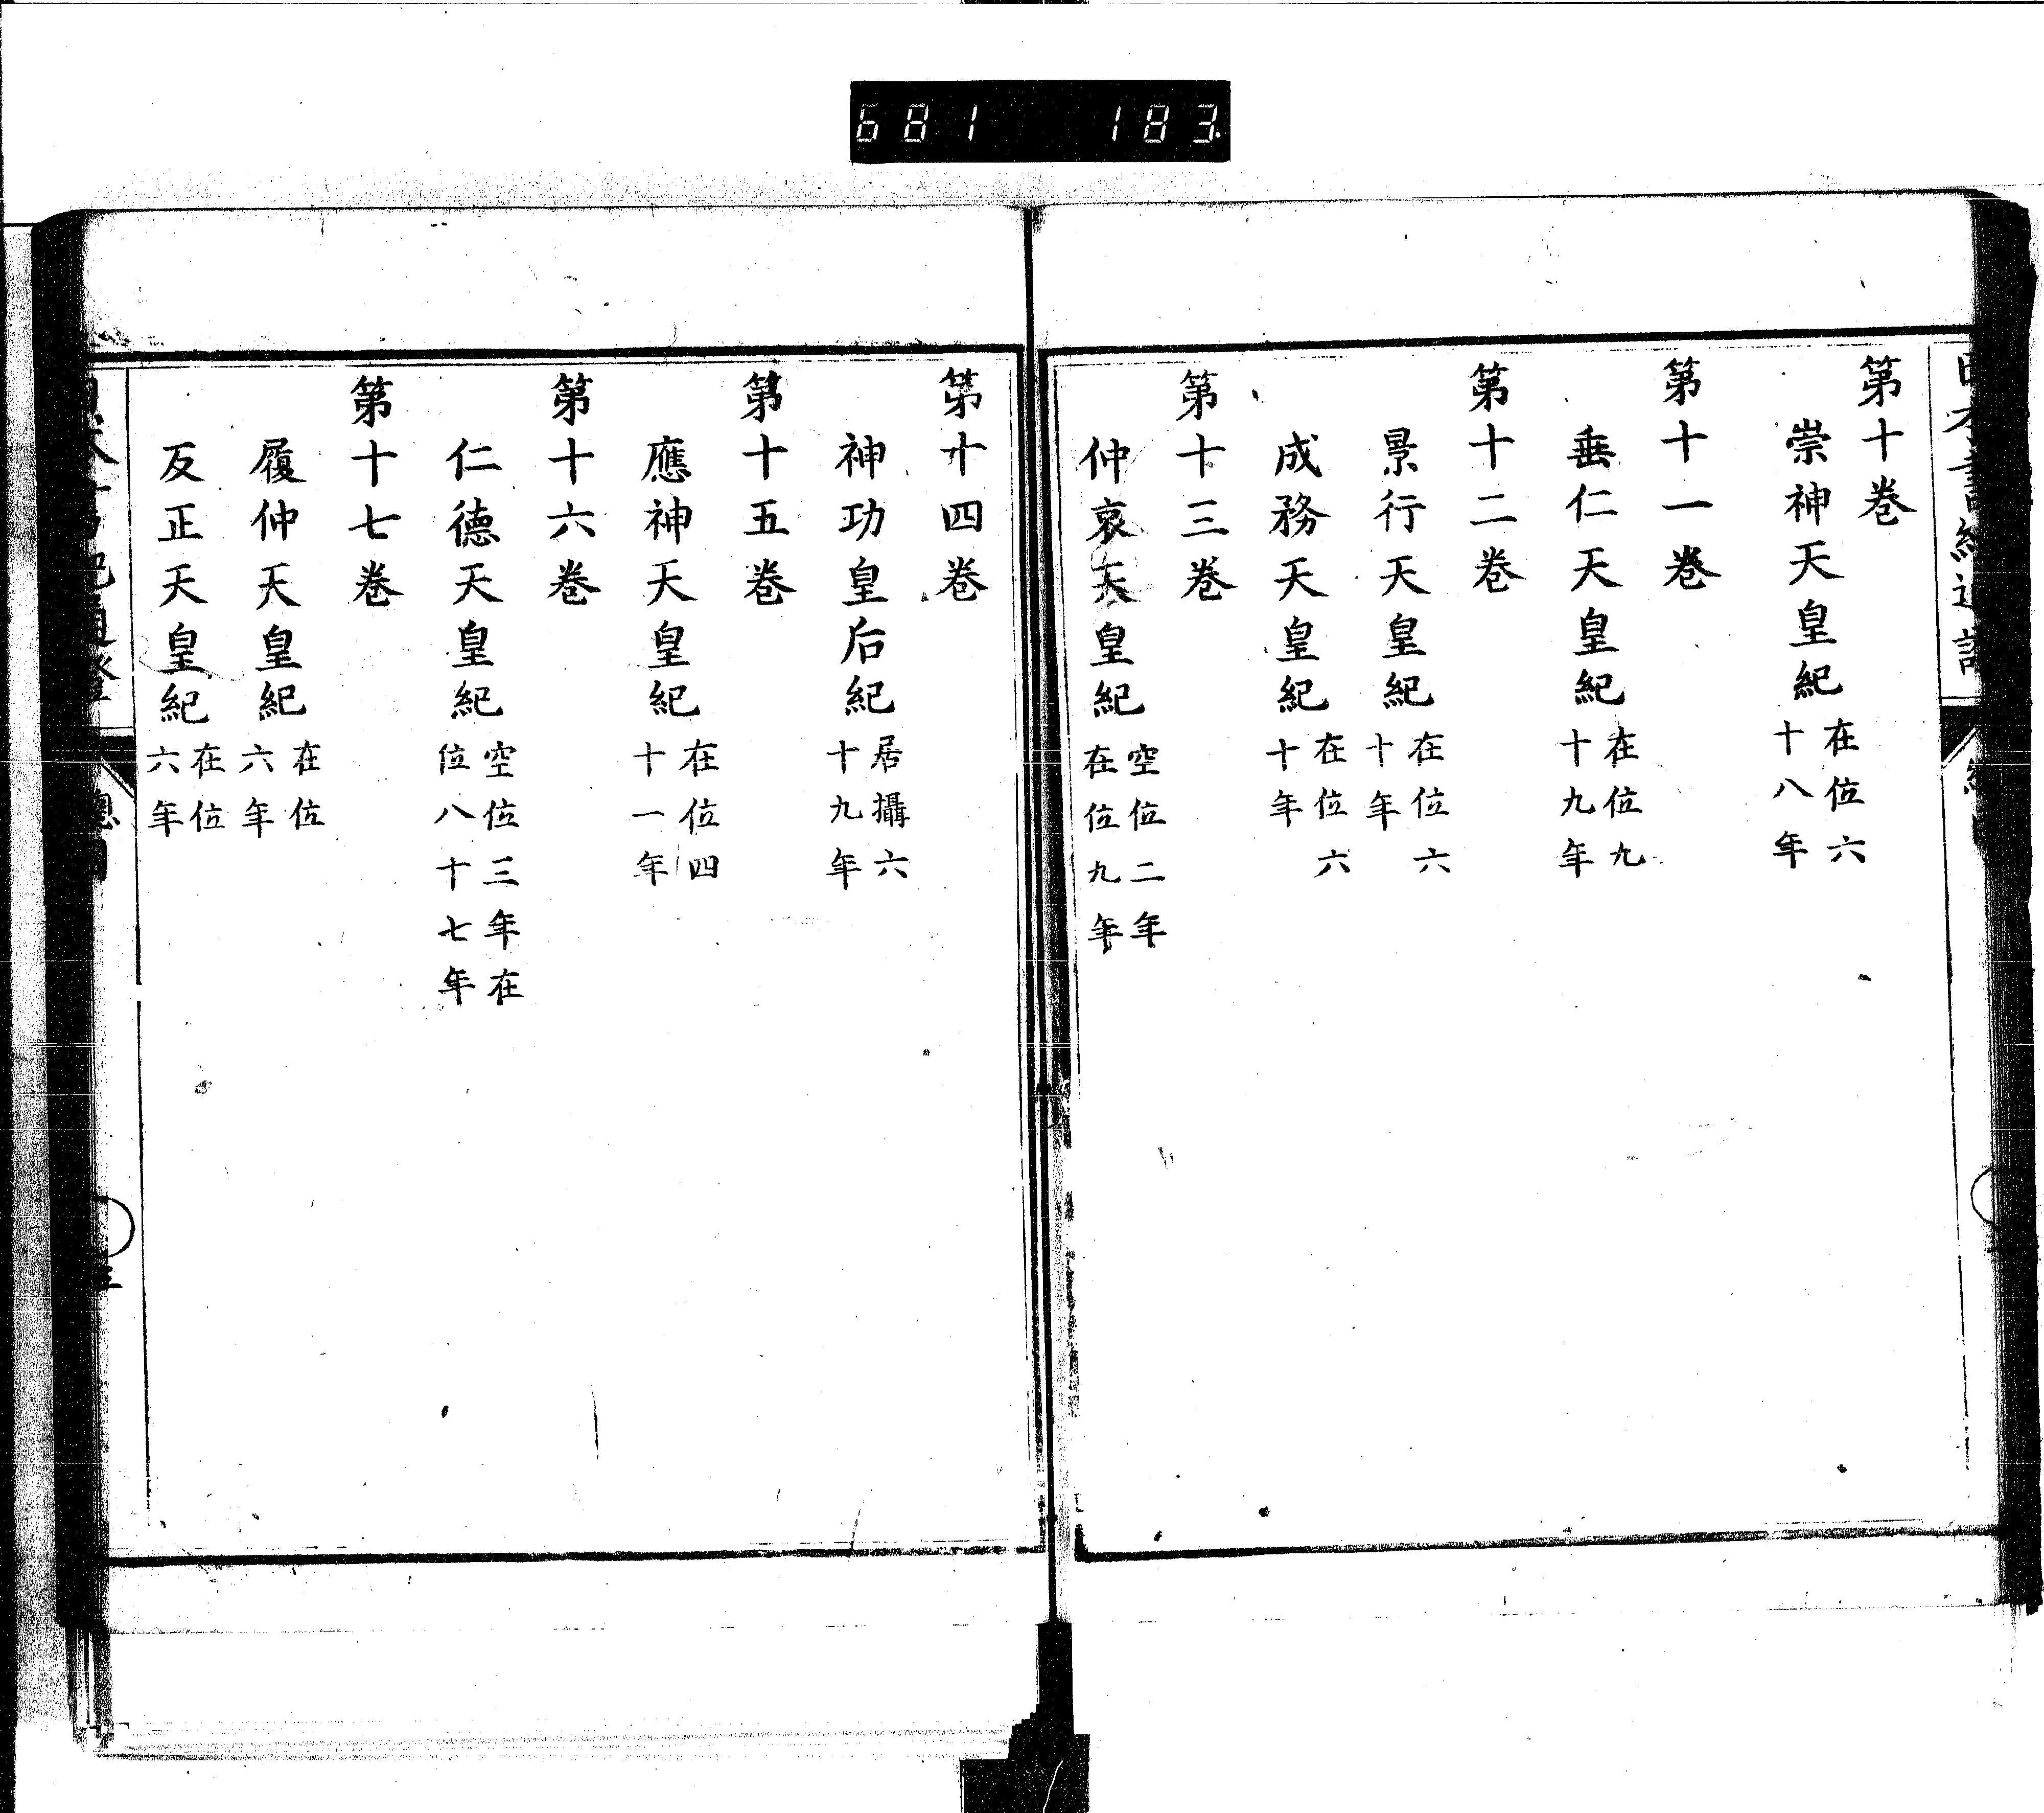 681 183
第十巻
崇神天皇紀 在位六十八年
第十一巻
垂仁天皇紀 在位九十九年
第十二巻
景行天皇紀 在位六十年
成務天皇紀 在位六十年
第十三巻
仲哀天皇紀 空位二年在位九年
第十四巻
神功皇后紀 居攝六十九年
第十五巻
應神天皇紀 在位四十一年
第十六巻
仁德天皇紀 空位三年在位八十七年
第十七巻
履仲天皇紀 在位六年
反正天皇紀 在位六年